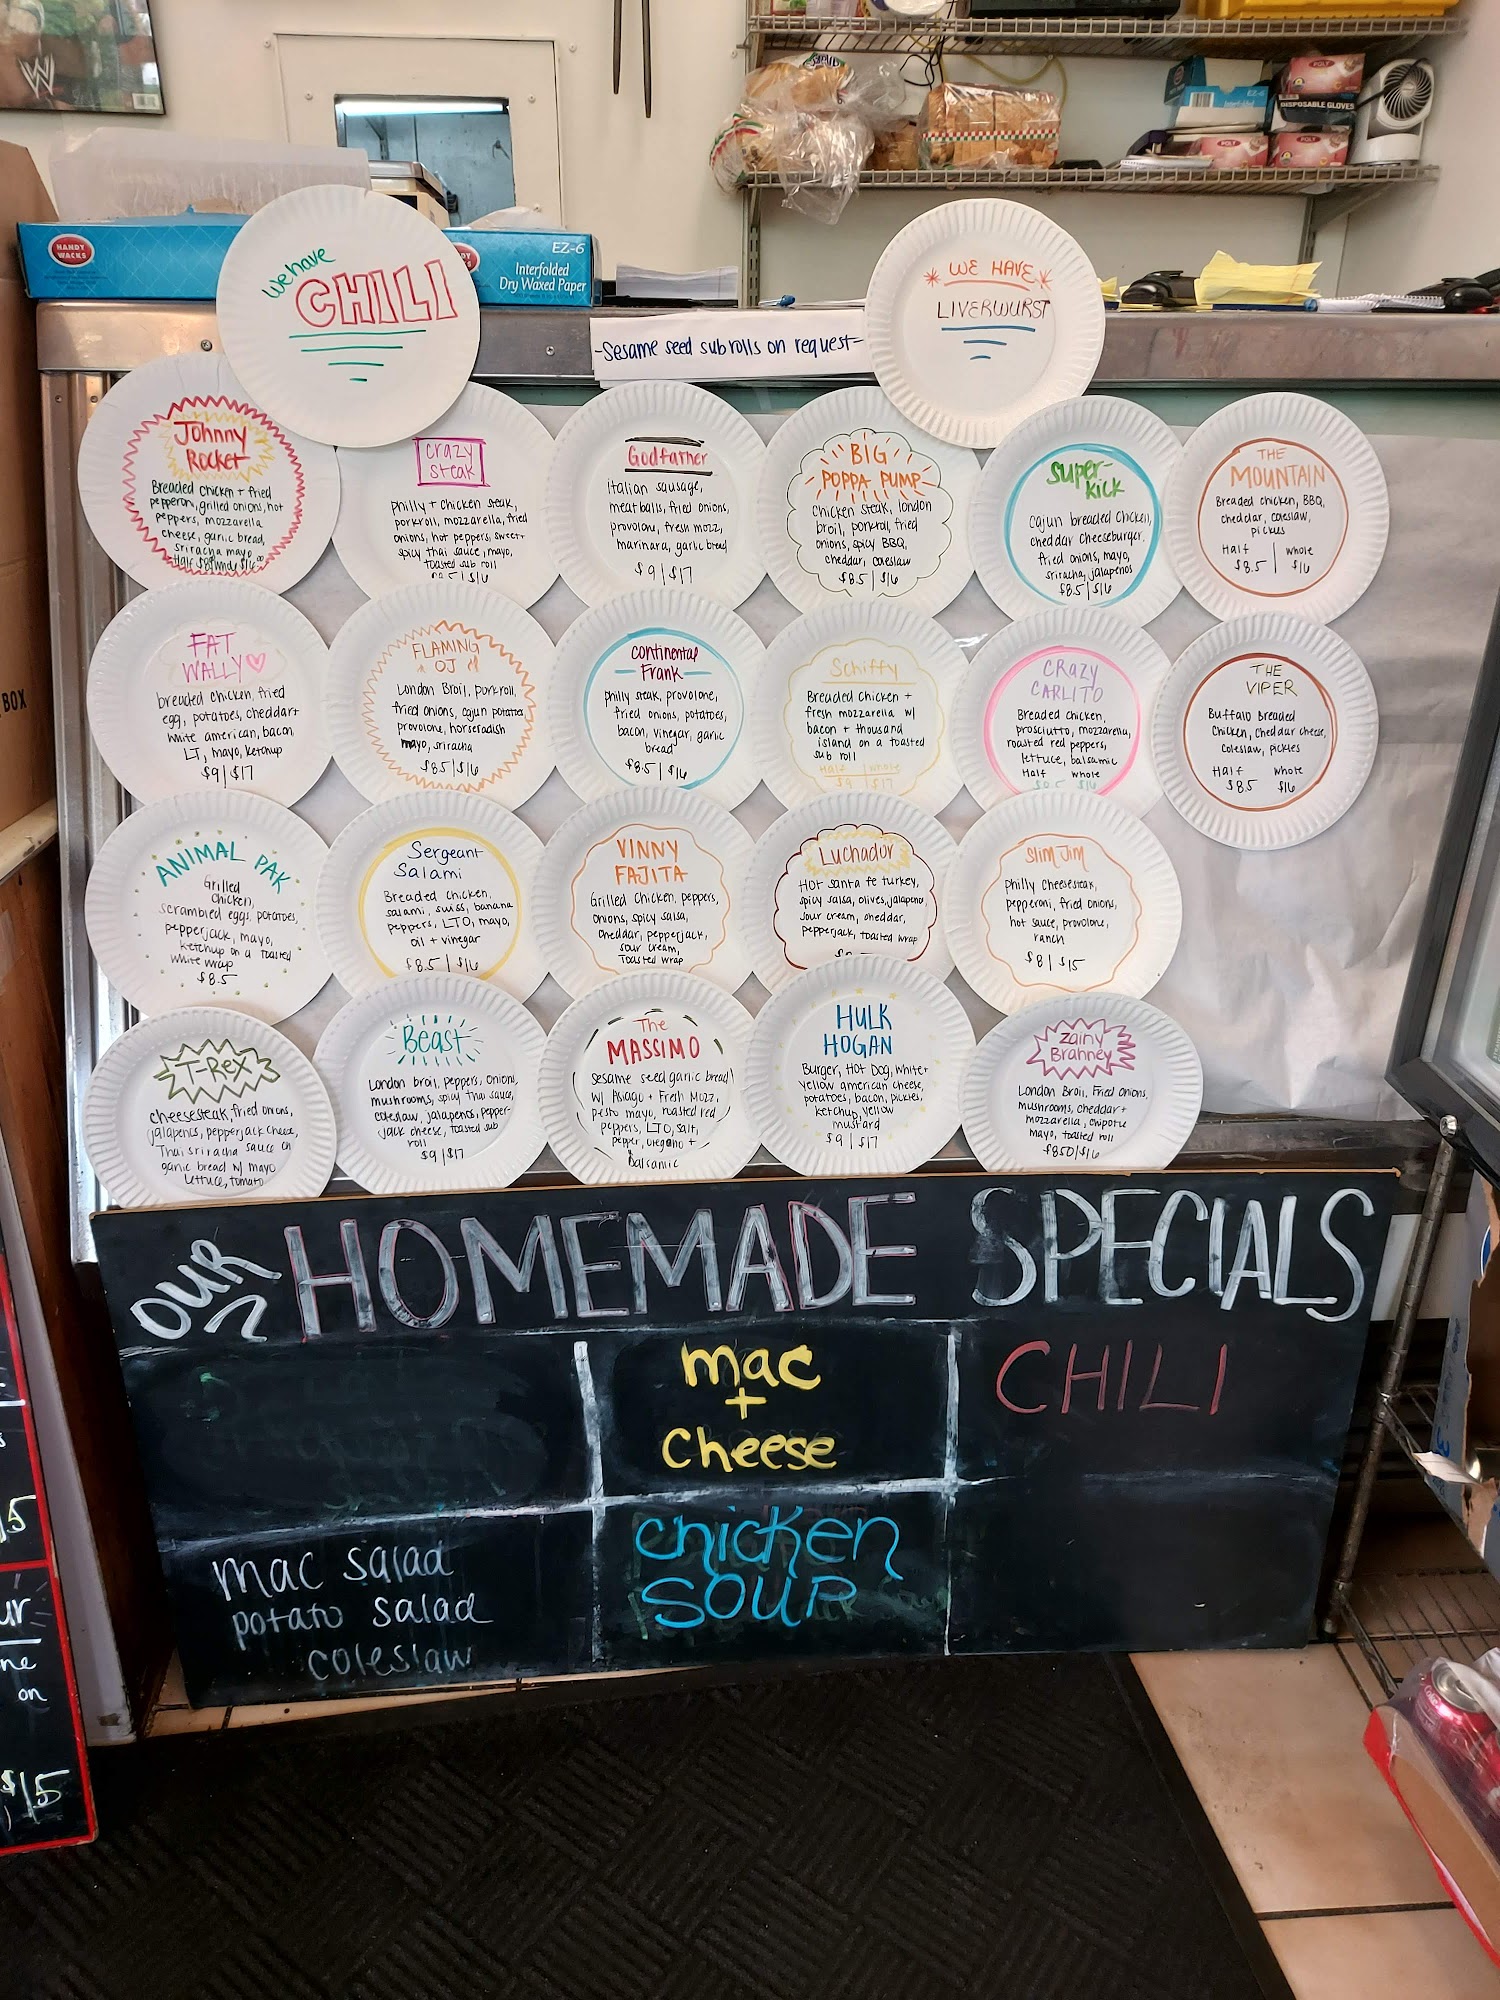 W
HANDY
WACKS
EZ-6
Interfolded
Dry Waxed Paper
EZ-6
Interfolded
POLY
DISPOSABLE GLOVES
POLY
POLY
BOX
We have
CHILI
WE HAVE
LIVERWURST
-Sesame seed sub rolls on request-
Johnny
Rocket
Breaded chicken + fried
pepperoni, grilled onions, hot
peppers, mozzarella
cheese, garlic bread,
sriracha mayo
Crazy
Steak
Philly + chicken steak,
porkroll, mozzarella, fried
onions, hot peppers, sweet +
spicy thai sauce, mayo,
toasted sub roll
Godfather
Italian sausage,
meatballs, fried onions,
provolone, fresh mozz,
marinara, garlic bread
$9 | $17
BIG
POPPA PUMP
Chicken steak, london
broil, porkroll, fried
onions, spicy BBQ,
cheddar, coleslaw
$8.5 | $16
Super-
kick
Cajun breaded chicken,
cheddar cheeseburger,
fried onions, mayo,
sriracha, jalapeños
$8.5 | $16
THE
MOUNTAIN
Breaded chicken, BBQ,
cheddar, coleslaw,
pickles
Half | whole
$8.5 | $16
FAT
WALLY
breaded chicken, fried
egg, potatoes, cheddar +
white american, bacon,
LT, mayo, ketchup
$9 | $17
FLAMING
OJ
London Broil, porkroll,
fried onions, cajun potatoes
provolone, horseradish
mayo, sriracha
$8.5 | $16
Continental
Frank
philly steak, provolone,
fried onions, potatoes,
bacon, vinegar, garlic
bread
$8.5 | $16
Schiffy
Breaded chicken +
fresh mozzarella w/
bacon + thousand
island on a toasted
sub roll
Half whole
$9 | $17
CRAZY
CARLITO
Breaded chicken,
prosciutto, mozzarella,
roasted red peppers,
lettuce, balsamic
Half whole
$8.5 $16
THE
VIPER
Buffalo Breaded
Chicken, Cheddar cheese,
Coleslaw, pickles
Half whole
$8.5 $16
ANIMAL PAK
Grilled
chicken,
scrambled eggs, potatoes,
pepperjack, mayo,
ketchup on a toasted
white wrap
$8.5
Sergeant
Salami
Breaded chicken,
salami, swiss, banana
peppers, LTO, mayo,
oil + vinegar
$8.5 | $16
VINNY
FAJITA
Grilled chicken, peppers,
onions, spicy salsa,
cheddar, pepperjack,
sour cream,
Toasted wrap
Luchador
Hot santa fe turkey,
spicy salsa, olives, jalapeño,
sour cream, cheddar,
pepperjack, toasted wrap
Slim Jim
Philly cheesesteak,
pepperoni, fried onions,
hot sauce, provolone,
ranch
$8 | $15
T-Rex
cheesesteak, fried onions,
jalapeños, pepperjack cheese,
Thai sriracha sauce on
garlic bread w/ mayo
lettuce, tomato
Beast
London broil, peppers, onions,
mushrooms, spicy thai sauce,
coleslaw, jalapeños, pepper-
jack cheese, toasted sub
roll
$9 | $17
The
MASSIMO
Sesame seed garlic bread
w/ Asiago + Fresh Mozz,
pesto mayo, roasted red
peppers, LTO, salt,
pepper, oregano +
Balsamic
HULK
HOGAN
Burger, Hot Dog, white +
yellow american cheese,
potatoes, bacon, pickles,
ketchup, yellow
mustard
$9 | $17
Zainy
Brahney
London Broil, Fried onions,
mushrooms, cheddar +
mozzarella, chipotle
mayo, toasted roll
$8.50 | $16
OUR HOMEMADE SPECIALS
mac
+
cheese
CHILI
mac salad
potato salad
coleslaw
chicken
SOUP
ur
ne
on
$15